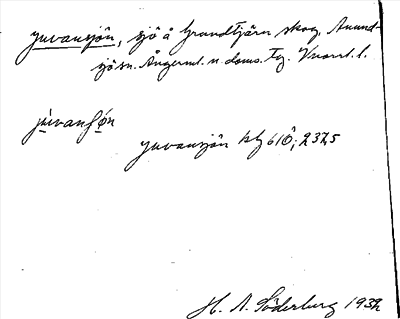 Yuvansjön, sjö å Grundtjärn skog, Anund-
sjö sn. Ångerml. n. doms. Tg. Vnorrl. l.
jùvanʃ ǿn
Yuvansjön kbl 61Ö; 2375
H. A. Söderburg 1932